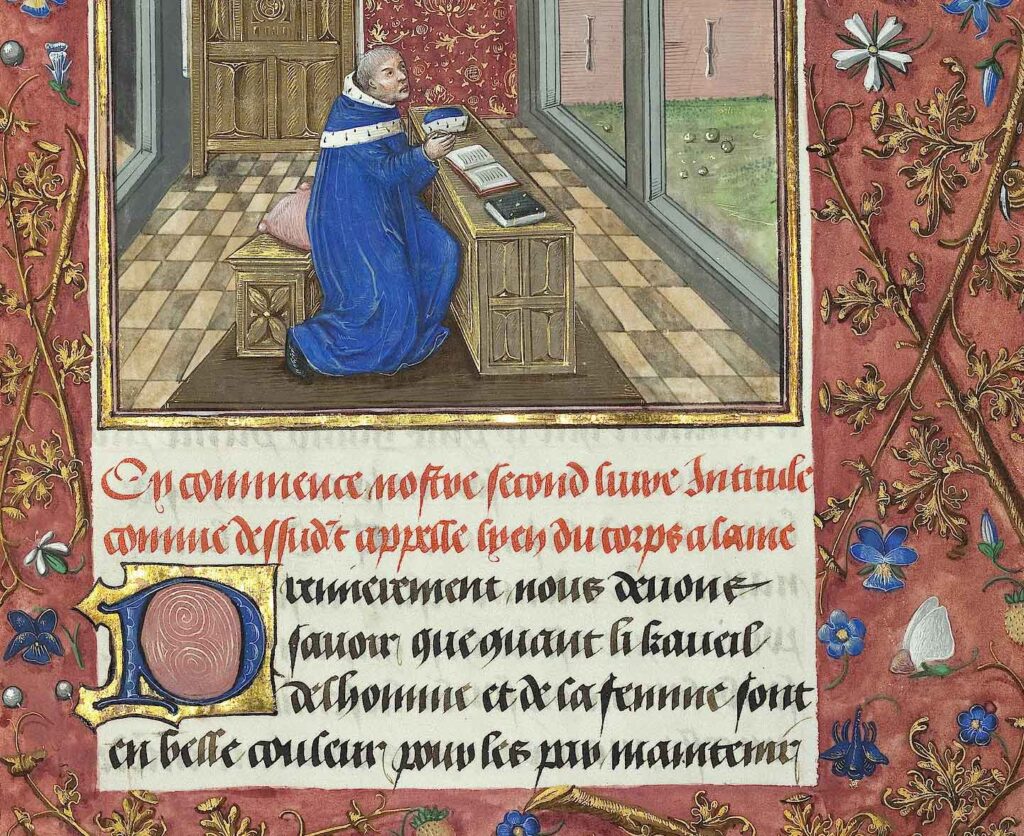 Cy commence nostre second livre Intitule
comme dessusd't appelle lyen du corps a lame
Premierement nous devons
savoir que quant li kaveil
de lhomme et de la femme sont
en belle couleur pour les par maintenir